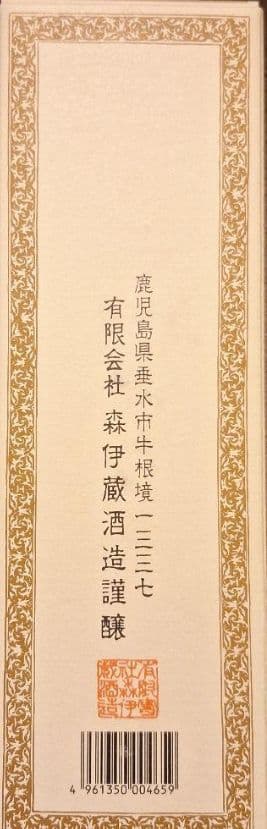 鹿児島県垂水市牛根境一三三七
有限会社 森伊蔵酒造謹醸
有限会
社森伊
蔵酒造
4 961350 004659